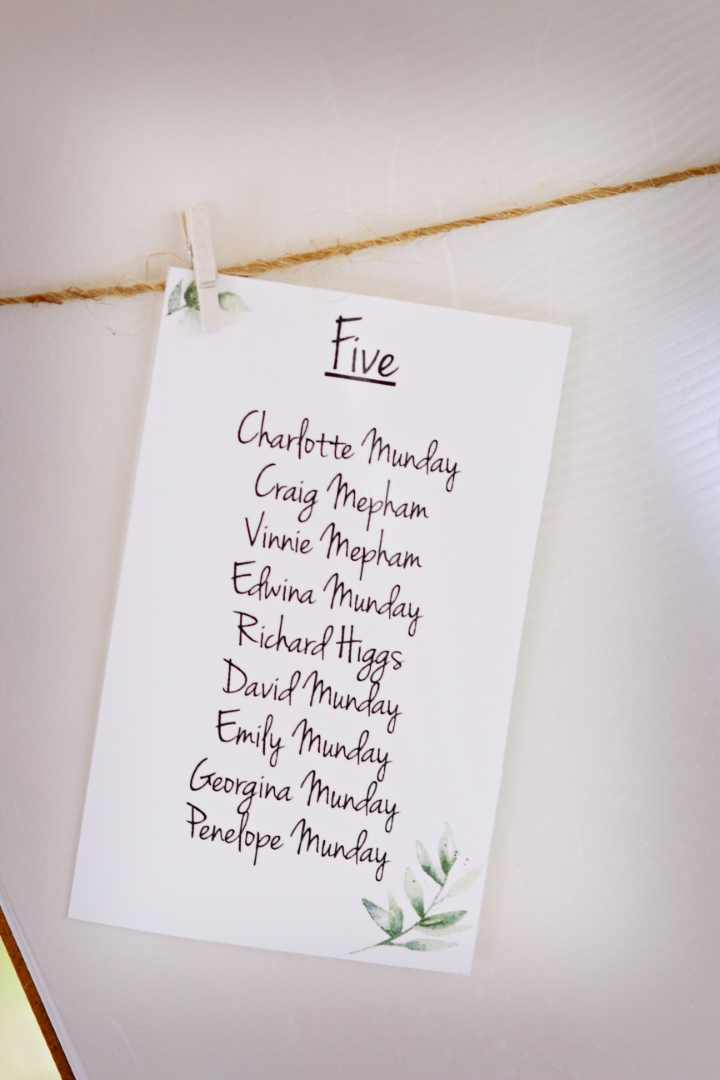 Five
Charlotte Munday
Craig Mepham
Vinnie Mepham
Edwina Munday
Richard Higgs
David Munday
Emily Munday
Georgina Munday
Penelope Munday